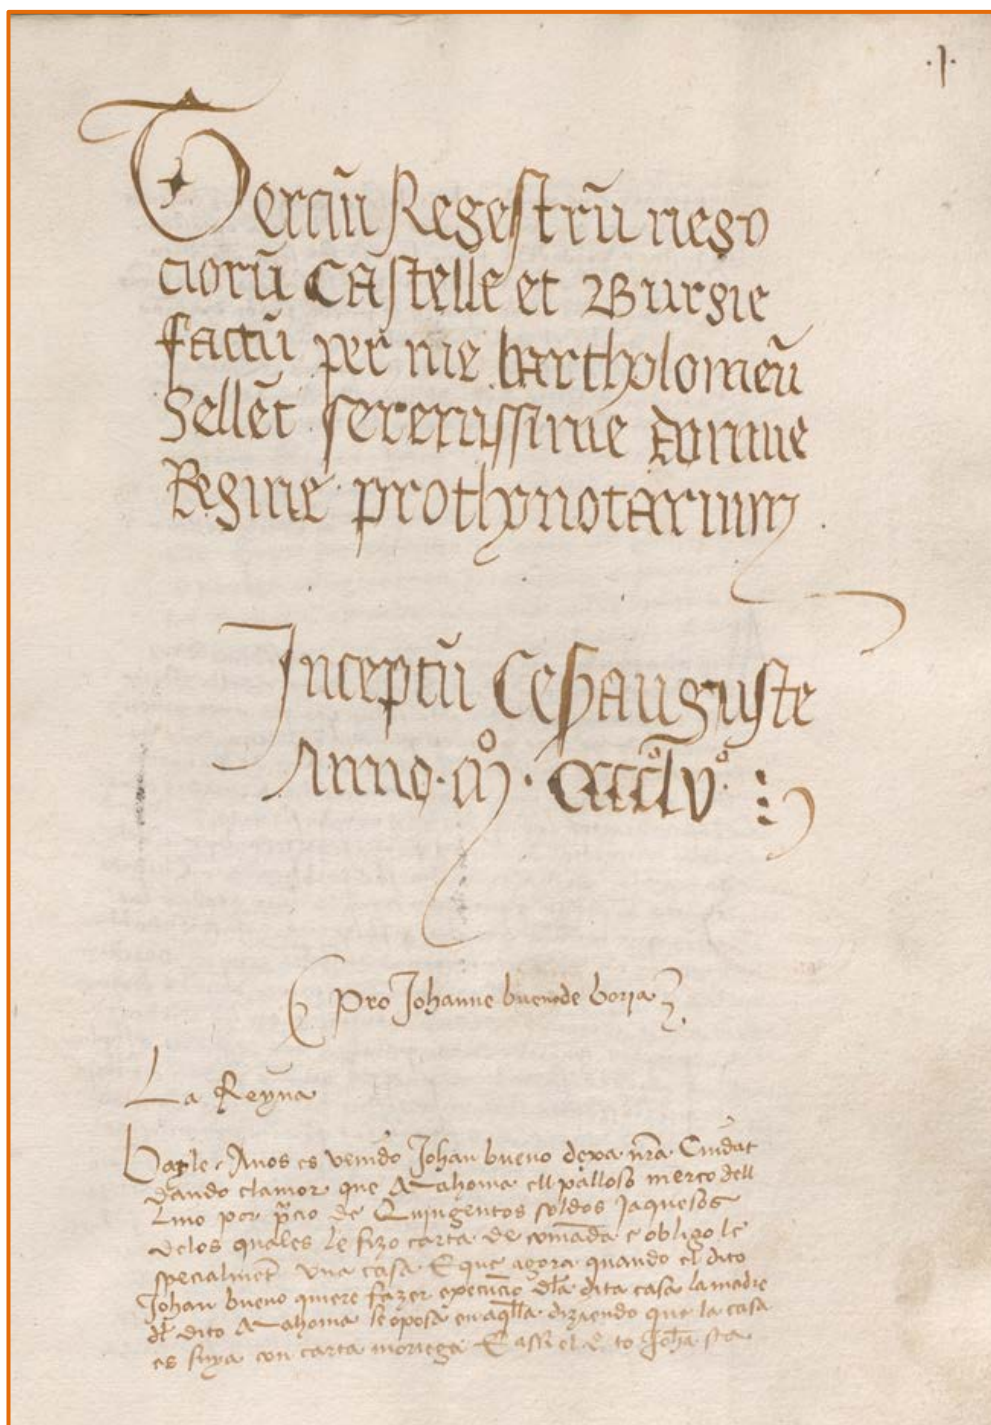 ·I·
Terciū Regestrū nego
ciorū Castelle et Burgie
factū per me bartholomeū
Sellēt serenissime domine
Regine prothonotarium
Inceptū Cesarauguste
Anno · M · CCCCLVº
Pro Johanne bueno de borja
La Reyna
Bayle Anos es venido Johan bueno dexa nr̄a Ciudat
dando clamor que Mahoma ell palloso merco dell
lino por p̄cio de Quingentos soldos Jaqueses
delos quales le fizo carta de comāda e obligo le
specialmēt una casa E que agora quando el dito
Johan bueno quiere fazer execucio dl̄a dita casa la madre
dl̄ dito Mahoma se oposa en aq̄lla diziendo que la casa
es suya con carta moriega E assi el d to Johā sta